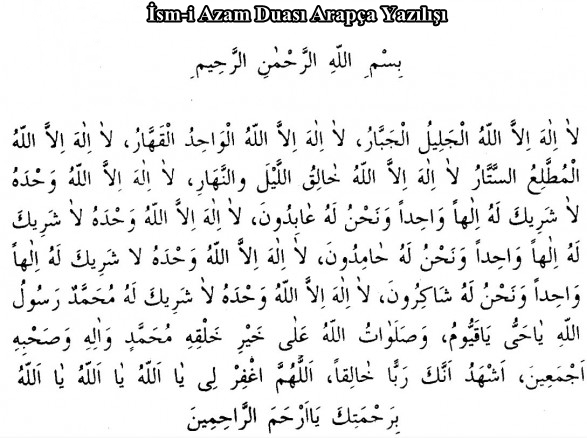 İsm-i Azam Duası Arapça Yazılışı
بِسْمِ اللّٰهِ الرَّحْمٰنِ الرَّحِيمِ
لاٰ اِلٰهَ اِلاَّ اللّٰهُ الْجَلِيلُ الْجَبَّارُ، لاٰ اِلٰهَ اِلاَّ اللّٰهُ الْوَاحِدُ الْقَهَّارُ، لاٰ اِلٰهَ اِلاَّ اللّٰهُ
الْمُطَّلِعُ السَّتَّارُ لاٰ اِلٰهَ اِلاَّ اللّٰهُ خَالِقُ اللَّيْلَ والنَّهَارِ، لاٰ اِلٰهَ اِلاَّ اللّٰهُ وَحْدَهُ
لاٰ شَرِيكَ لَهُ اِلٰهاً وَاحِداً وَنَحْنُ لَهُ عٰابِدُونَ، لاٰ اِلٰهَ اِلاَّ اللّٰهُ وَحْدَهُ لاٰ شَرِيكَ
لَهُ اِلٰهاً وَاحِداً وَنَحْنُ لَهُ حٰامِدُونَ، لاٰ اِلٰهَ اِلاَّ اللّٰهُ وَحْدَهُ لاٰ شَرِيكَ لَهُ اِلٰهاً
وَاحِداً وَنَحْنُ لَهُ شٰاكِرُونَ، لاٰ اِلٰهَ اِلاَّ اللّٰهُ وَحْدَهُ لاٰ شَرِيكَ لَهُ مُحَمَّدٌ رَسُولُ
اللّٰهِ يٰاحَىُّ يٰاقَيُّومُ، وَصَلَوٰاتُ اللّٰهُ عَلٰى خَيْرِ خَلْقِهِ مُحَمَّدٍ وَاٰلِهِ وَصَحْبِهِ
اَجْمَعِينَ، اَشْهَدُ اَنَّكَ رَبًّا خٰالِقاً، اَللّٰهُمَّ اغْفِرْ لِى يٰا اَللّٰهُ يٰا اَللّٰهُ يٰا اَللّٰهُ
بِرَحْمَتِكَ يٰااَرْحَمَ الرَّاحِمِينَ